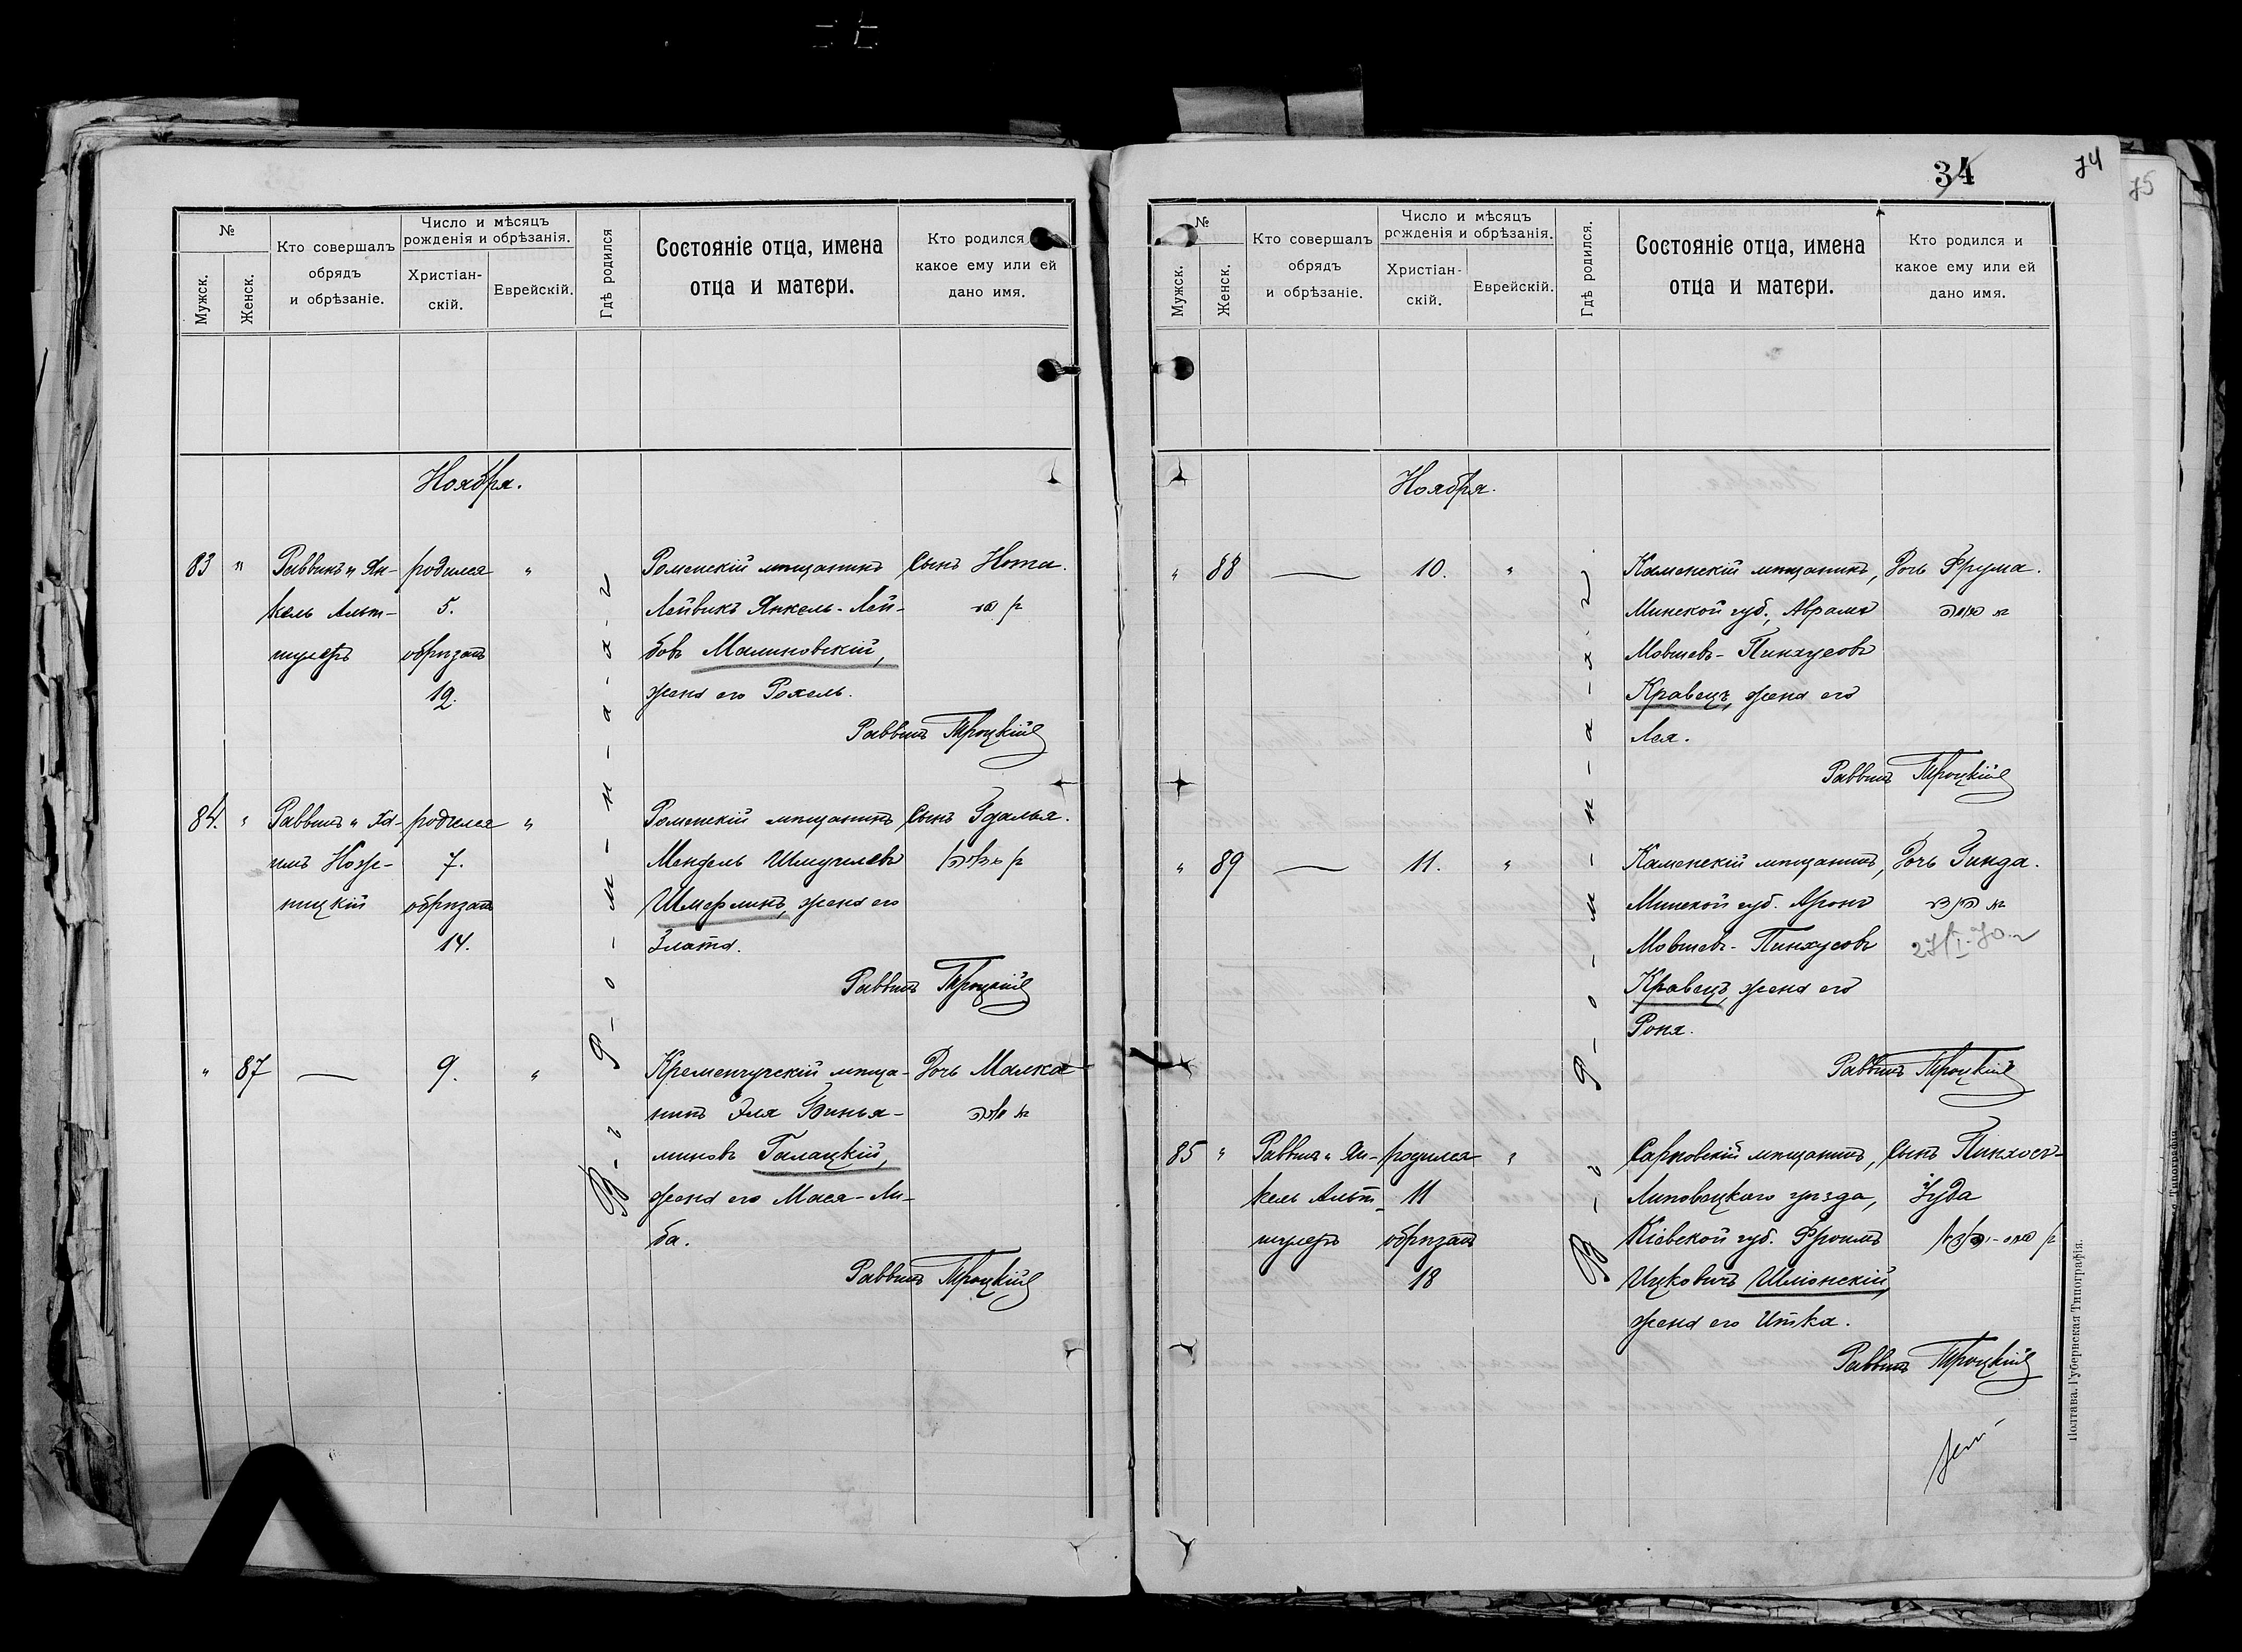 34
74
75
№
Мужск.
Женск.
Кто совершалъ
обрядъ
и обрѣзаніе.
Число и мѣсяцъ
рожденія и обрѣзанія.
Христіан-
скій.
Еврейскій.
Гдѣ родился
Состояніе отца, имена
отца и матери.
Кто родился
какое ему или ей
дано имя.
Ноября.
83 " Раввинъ и Ян- родился " Роменскій мѣщанинъ Сынъ Нота.
кель Альт- 5. Лейвикъ Янкель-Лей-
шулеръ обрѣзанъ бовъ Малиновскій,
12. жена его Рохель.
Раввинъ Троцкій
84. " Раввинъ и Ха- родился " Роменскій мѣщанинъ Сынъ Гдалья.
имъ Нозе- 7. Мендель Шмуилевъ
ницкій обрѣзанъ Шмерлинъ, жена его
14. Злата.
Раввинъ Троцкій
" 87 — 9. " Кременчугскій мѣща- Дочь Малка
нинъ Эля Бинья-
миновъ Галацкій,
жена его Мася-Ли-
ба.
Раввинъ Троцкій
В-ъ Р-о-м-н-а-х-ъ
№
Мужск.
Женск.
Кто совершалъ
обрядъ
и обрѣзаніе.
Число и мѣсяцъ
рожденія и обрѣзанія.
Христіан-
скій.
Еврейскій.
Гдѣ родился.
Состояніе отца, имена
отца и матери.
Кто родился и
какое ему или ей
дано имя.
Ноября.
" 88 — 10. " Каменскій мѣщанинъ, Дочь Фрума.
Минской губ., Абрамъ
Мовшевъ-Пинхусовъ
Кравецъ, жена его
Лея.
Раввинъ Троцкій
" 89 — 11. " Каменскій мѣщанинъ, Дочь Гинда.
Минской губ. Аронъ
Мовшевъ-Пинхусовъ
Кравецъ, жена его
Роня.
Раввинъ Троцкій
85 " Раввинъ и Ян- родился " Сарновскій мѣщанинъ, Сынъ Пинхосъ-
кель Альт- 11 Липовецкаго уѣзда, Іуда
шулеръ обрѣзанъ Кіевской губ. Фроимъ
18 Ицковичъ Шліонскій,
жена его Итка.
Раввинъ Троцкій
В-ъ Р-о-м-н-а-х-ъ
Полтава. Губернская Типографія.